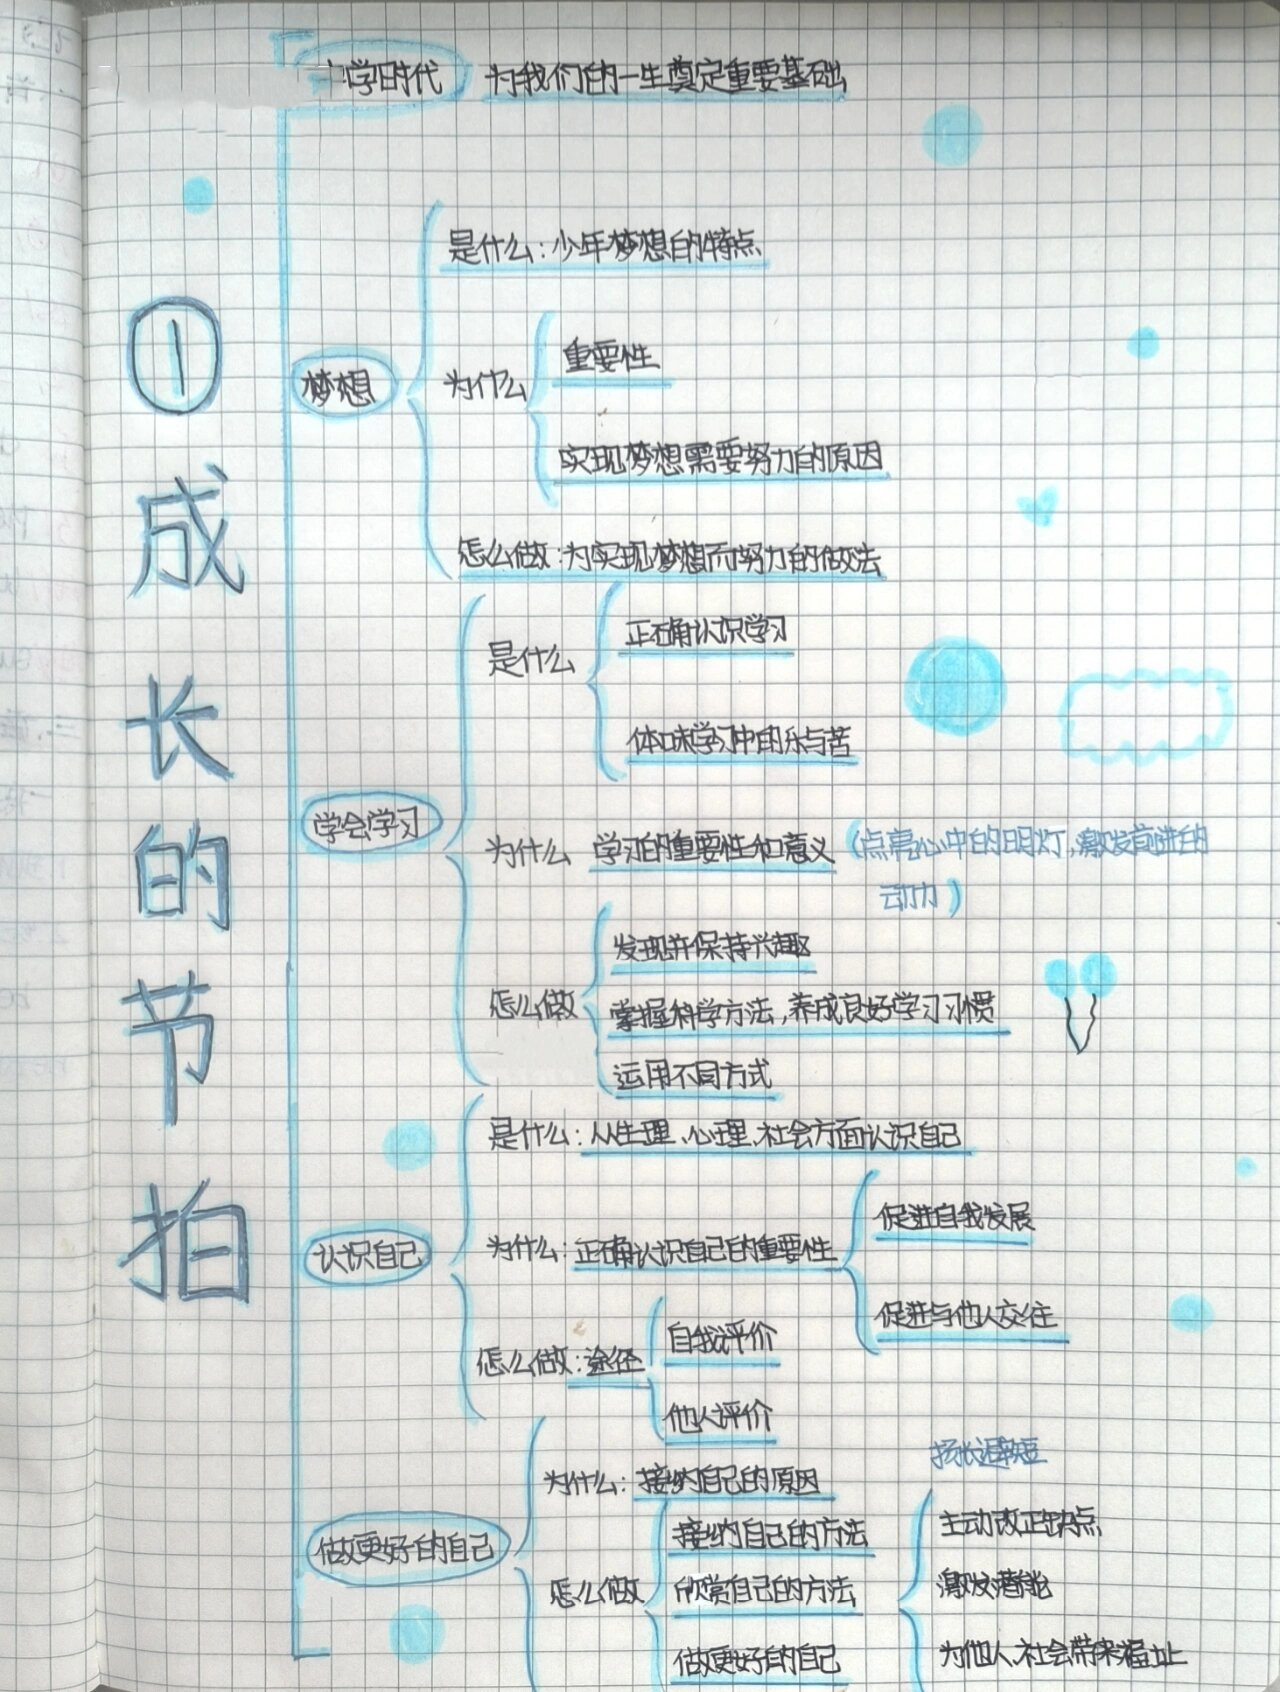 ①成长的节拍
中学时代 为我们的一生奠定重要基础
梦想
是什么：少年梦想的特点
为什么
重要性
实现梦想需要努力的原因
怎么做：为实现梦想而努力的做法
学会学习
是什么
正确认识学习
体味学习中的乐与苦
为什么 学习的重要性和意义（点亮心中的明灯，激发前进的
动力）
怎么做
发现并保持兴趣
掌握科学方法，养成良好学习习惯
运用不同方式
认识自己
是什么：从生理、心理、社会方面认识自己
为什么：正确认识自己的重要性
促进自我发展
促进与他人交往
怎么做：途径
自我评价
他人评价
做更好的自己
为什么：接纳自己的原因
怎么做
接纳自己的方法
欣赏自己的方法
做更好的自己
扬长避短
主动改正缺点
激发潜能
为他人、社会带来福祉